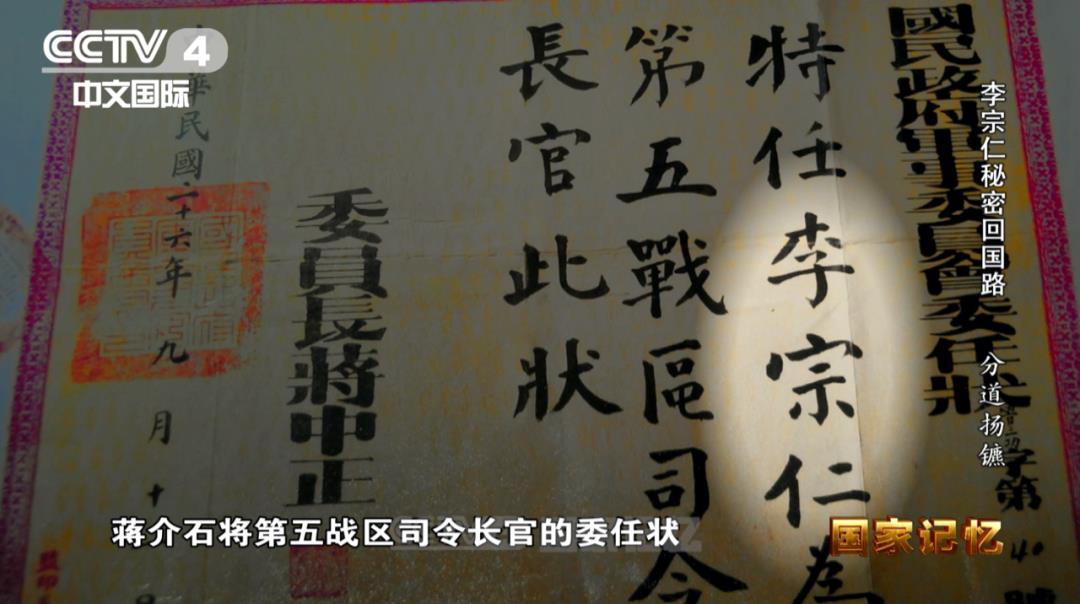 CCTV 4
中文国际
國民政府軍事委員會委任狀
字第40號
特任李宗仁為
第五戰區司令
長官此狀
委員長蔣中正
華民國二十六年九月十
日
監印
李宗仁秘密回国路 分道扬镳
蒋介石将第五战区司令长官的委任状
国家记忆